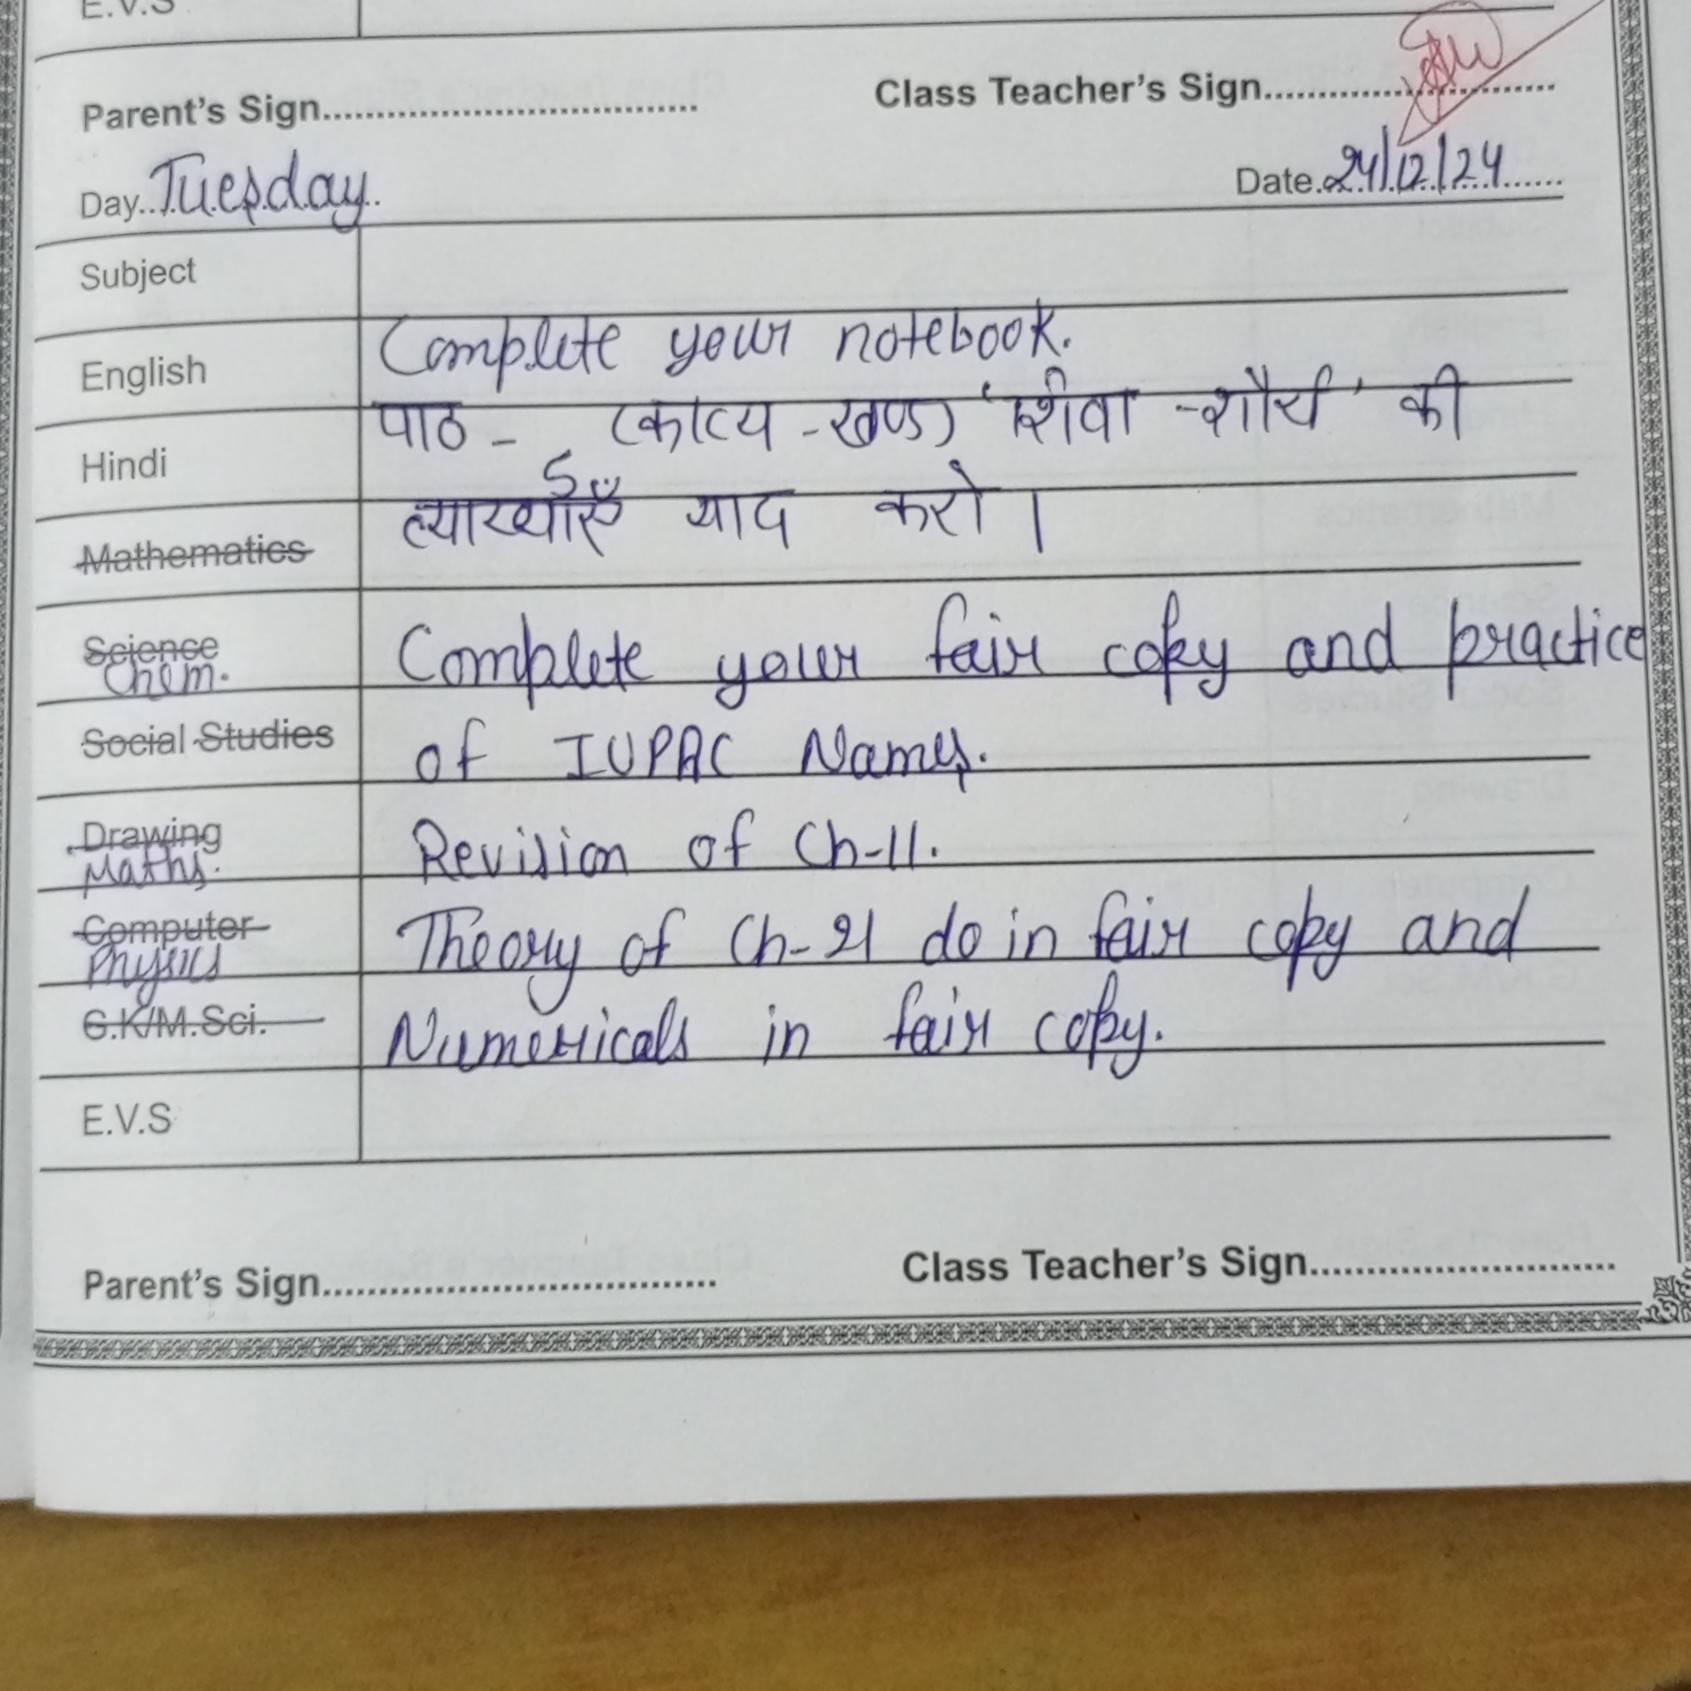 E.V.S
Parent's Sign.............................. Class Teacher's Sign..............................
Day..Tuesday. Date.24/12/24......
Subject
English Complete your notebook.
Hindi पाठ - (काव्य - खण्ड) 'शिवा - शौर्य' की
व्याख्याएँ याद करो।
Mathematics
Science
Chem. Complete your fair copy and practice
Social Studies of IUPAC Names.
Drawing
Maths. Revision of Ch-11.
Computer
Physics Theory of Ch-21 do in fair copy and
G.K/M.Sci. Numericals in fair copy.
E.V.S
Parent's Sign.............................. Class Teacher's Sign..............................